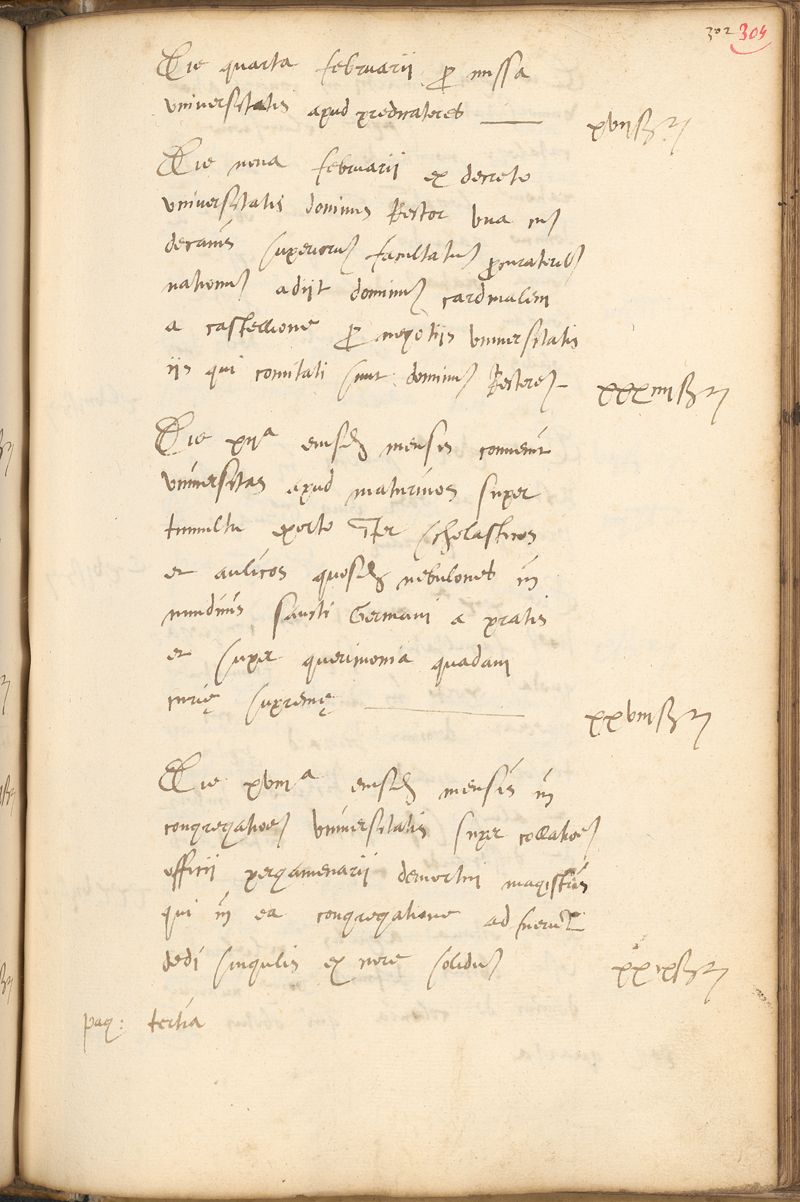 302 305
Die quarta februarii p missa
universitatis apud predicatores xviiß
Die nona februarii ex decreto
universitatis dominus Rector una cu
decanis superioru facultatu procuratorib
nationu adiit dominu cardinalem
a castellione p negotiis universitatis
iis qui comitati sunt dominu Rectore xxxiiiiß
Die xiia eiusd mensis convenit
universitas apud maturinos super
tumultu exorto Iter scholasticos
et aulicos quosd nebulones in
nundinis sancti Germani a pratis
et super querimonia quadam
curię supremę xxviiiß
Die xviiia eiusd mensis in
congregatioe universitatis super collatioe
officii pergamenarii demortui magistris
qui in ea congregatione adfuerut
dedi singulis ex more solidu xxixß
pag: tertia